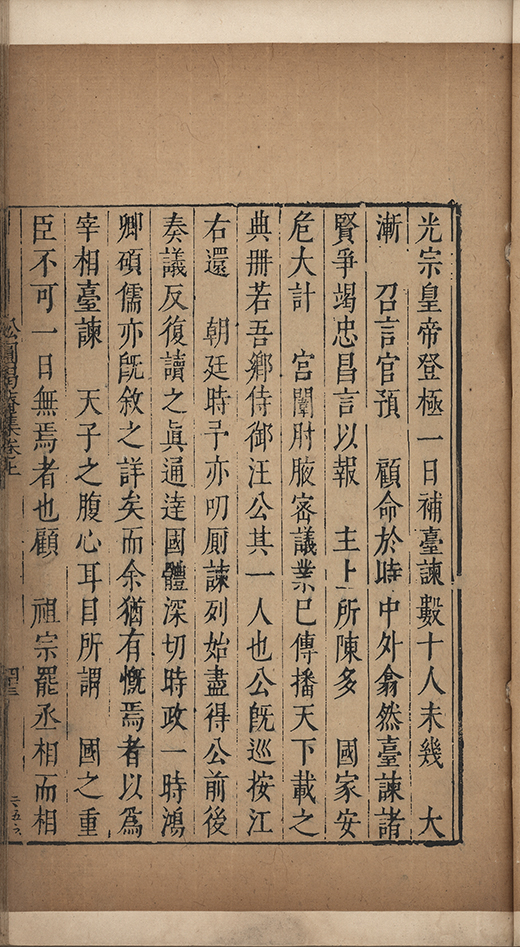 光宗皇帝登極一日補臺諫數十人未幾　大
漸　召言官預　顧命於時中外翕然臺諫諸
賢爭竭忠昌言以報　主上所陳多　國家安
危大計　宮闈肘腋密議業已傳播天下載之
典冊若吾鄉侍御汪公其一人也公既巡按江
右還　朝廷時予亦叨厠諫列始盡得公前後
奏議反復讀之眞通達國體深切時政一時鴻
卿碩儒亦既敘之詳矣而余猶有慨焉者以爲
宰相臺諫　天子之腹心耳目所謂　國之重
臣不可一日無焉者也顧　祖宗罷丞相而相
集卷上